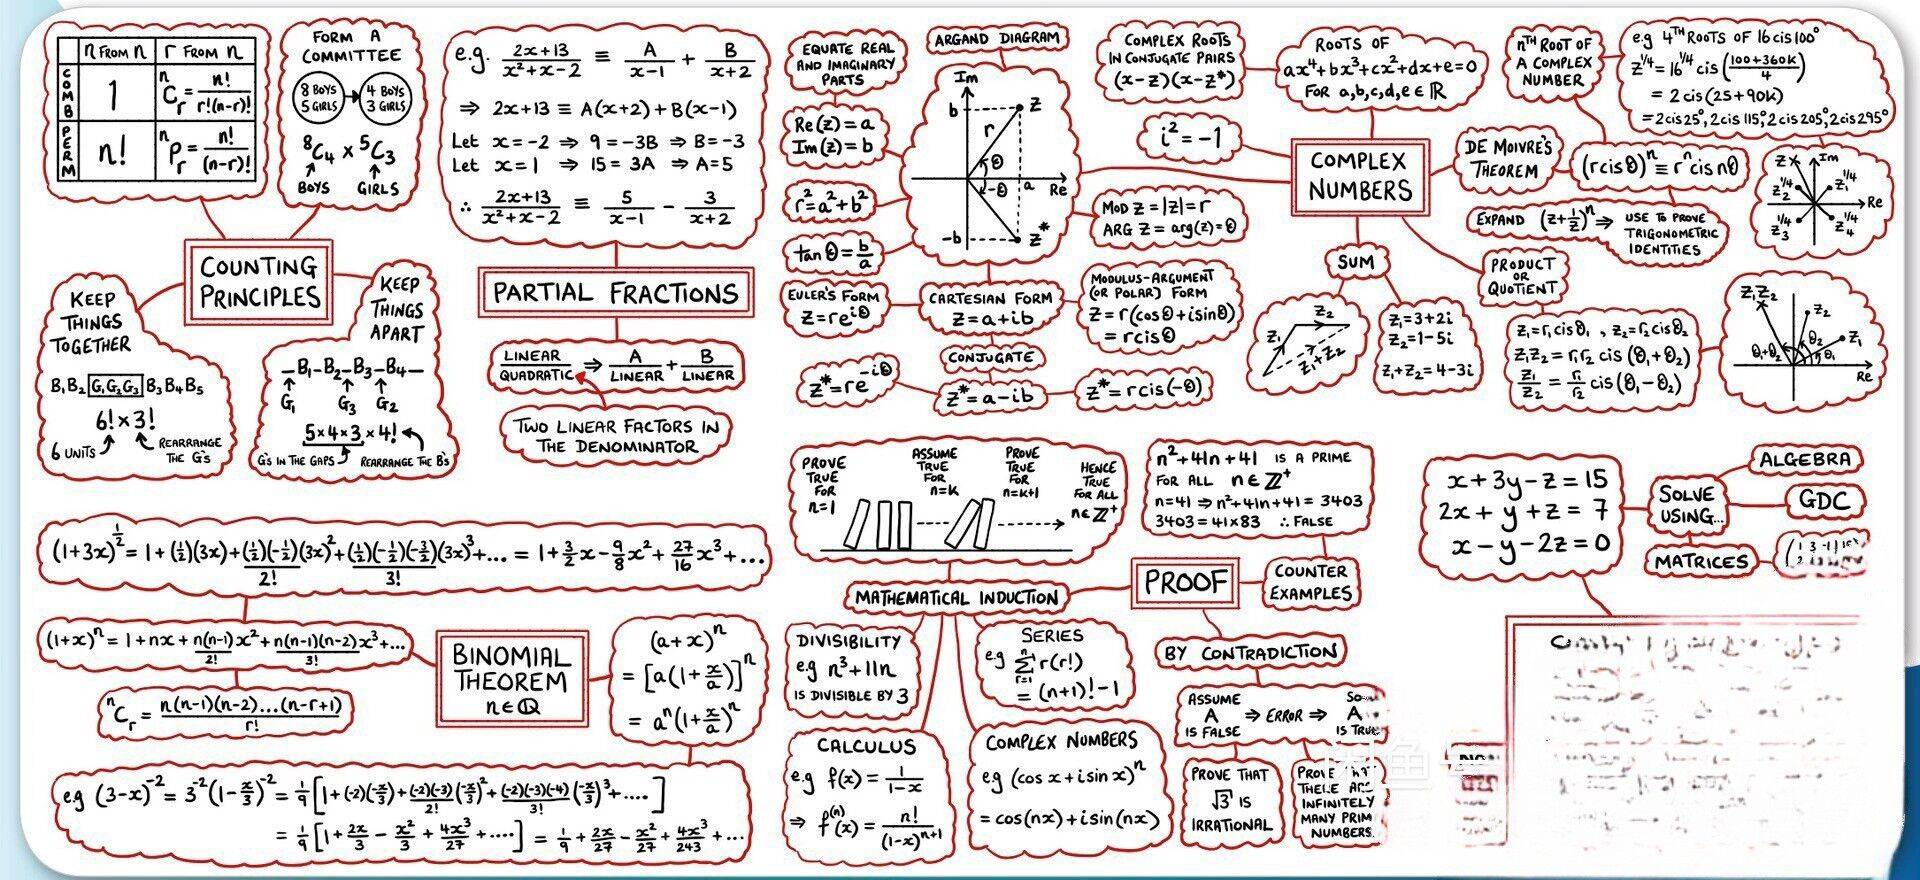 n FROM n
r FROM n
COMB
1
nCr = n!/(r!(n-r)!)
PERM
n!
nPr = n!/(n-r)!
FORM A
COMMITTEE
8 BOYS
5 GIRLS
4 BOYS
3 GIRLS
⁸C₄ × ⁵C₃
BOYS
GIRLS
COUNTING
PRINCIPLES
KEEP
THINGS
TOGETHER
B₁B₂ G₁G₂G₃ B₃B₄B₅
6! × 3!
6 UNITS
REARRANGE
THE G's
KEEP
THINGS
APART
_B₁_B₂_B₃_B₄_
G₁ G₃ G₂
5×4×3 × 4!
G's IN THE GAPS
REARRANGE THE B's
e.g. (2x+13)/(x²+x-2) ≡ A/(x-1) + B/(x+2)
⇒ 2x+13 ≡ A(x+2)+B(x-1)
Let x=-2 ⇒ 9=-3B ⇒ B=-3
Let x=1 ⇒ 15=3A ⇒ A=5
∴ (2x+13)/(x²+x-2) ≡ 5/(x-1) - 3/(x+2)
PARTIAL FRACTIONS
LINEAR/QUADRATIC ⇒ A/LINEAR + B/LINEAR
TWO LINEAR FACTORS IN
THE DENOMINATOR
EQUATE REAL
AND IMAGINARY
PARTS
Re(z)=a
Im(z)=b
r²=a²+b²
tanθ=b/a
EULER'S FORM
z=re^(iθ)
ARGAND DIAGRAM
Im
b
z
r
θ
-θ
a
Re
-b
z*
CARTESIAN FORM
z=a+ib
CONJUGATE
z*=re^(-iθ)
z*=a-ib
z*=rcis(-θ)
MOD z=|z|=r
ARG z=arg(z)=θ
MODULUS-ARGUMENT
(OR POLAR) FORM
z=r(cosθ+isinθ)
=rcisθ
COMPLEX ROOTS
IN CONJUGATE PAIRS
(x-z)(x-z*)
i²=-1
ROOTS OF
ax⁴+bx³+cx²+dx+e=0
FOR a,b,c,d,e∈ℝ
COMPLEX
NUMBERS
nTH ROOT OF
A COMPLEX
NUMBER
e.g 4TH ROOTS OF 16cis100°
z^(1/4)=16^(1/4) cis((100+360k)/4)
= 2cis(25+90k)
=2cis25°, 2cis115°, 2cis205°, 2cis295°
DE MOIVRE'S
THEOREM
(rcisθ)ⁿ≡rⁿcisnθ
EXPAND (z+1/z)ⁿ ⇒ USE TO PROVE
TRIGONOMETRIC
IDENTITIES
z Im
z₂^(1/4) z₁^(1/4)
Re
z₃^(1/4) z₄^(1/4)
SUM
z₁ z₂
z₁+z₂
z₁=3+2i
z₂=1-5i
z₁+z₂=4-3i
PRODUCT
OR
QUOTIENT
z₁=r₁cisθ₁, z₂=r₂cisθ₂
z₁z₂=r₁r₂cis(θ₁+θ₂)
z₁/z₂=r₁/r₂ cis(θ₁-θ₂)
z₁z₂
z₂
z₁
θ₁+θ₂ θ₂ θ₁
Re
(1+3x)^(1/2) = 1+(1/2)(3x)+(1/2)(-1/2)(3x)²/2!+(1/2)(-1/2)(-3/2)(3x)³/3!+... = 1+3/2x-9/8x²+27/16x³+...
(1+x)ⁿ=1+nx+n(n-1)x²/2!+n(n-1)(n-2)x³/3!+...
nCr = n(n-1)(n-2)...(n-r+1)/r!
BINOMIAL
THEOREM
n∈ℚ
(a+x)ⁿ
=[a(1+x/a)]ⁿ
=aⁿ(1+x/a)ⁿ
e.g (3-x)⁻²=3⁻²(1-x/3)⁻²=1/9[1+(-2)(-x/3)+(-2)(-3)/2!(-x/3)²+(-2)(-3)(-4)/3!(-x/3)³+....]
=1/9[1+2x/3-x²/3+4x³/27+....]=1/9+2x/27-x²/27+4x³/243+...
PROVE
TRUE
FOR
n=1
ASSUME
TRUE
FOR
n=k
PROVE
TRUE
FOR
n=k+1
HENCE
TRUE
FOR ALL
n∈ℤ⁺
MATHEMATICAL INDUCTION
PROOF
n²+41n+41 IS A PRIME
FOR ALL n∈ℤ⁺
n=41⇒n²+41n+41=3403
3403=41×83 ∴FALSE
COUNTER
EXAMPLES
DIVISIBILITY
e.g n³+11n
IS DIVISIBLE BY 3
SERIES
e.g Σ(r=1 to n) r(r!)
=(n+1)!-1
CALCULUS
e.g f(x)=1/(1-x)
⇒ f⁽ⁿ⁾(x)=n!/(1-x)ⁿ⁺¹
COMPLEX NUMBERS
e.g (cosx+isinx)ⁿ
=cos(nx)+isin(nx)
BY CONTRADICTION
ASSUME
A
IS FALSE
⇒ERROR⇒
So
A
IS TRUE
PROVE THAT
√3 IS
IRRATIONAL
PROVE THAT
THERE ARE
INFINITELY
MANY PRIM
NUMBERS.
x+3y-z=15
2x+y+z=7
x-y-2z=0
SOLVE
USING...
ALGEBRA
GDC
MATRICES